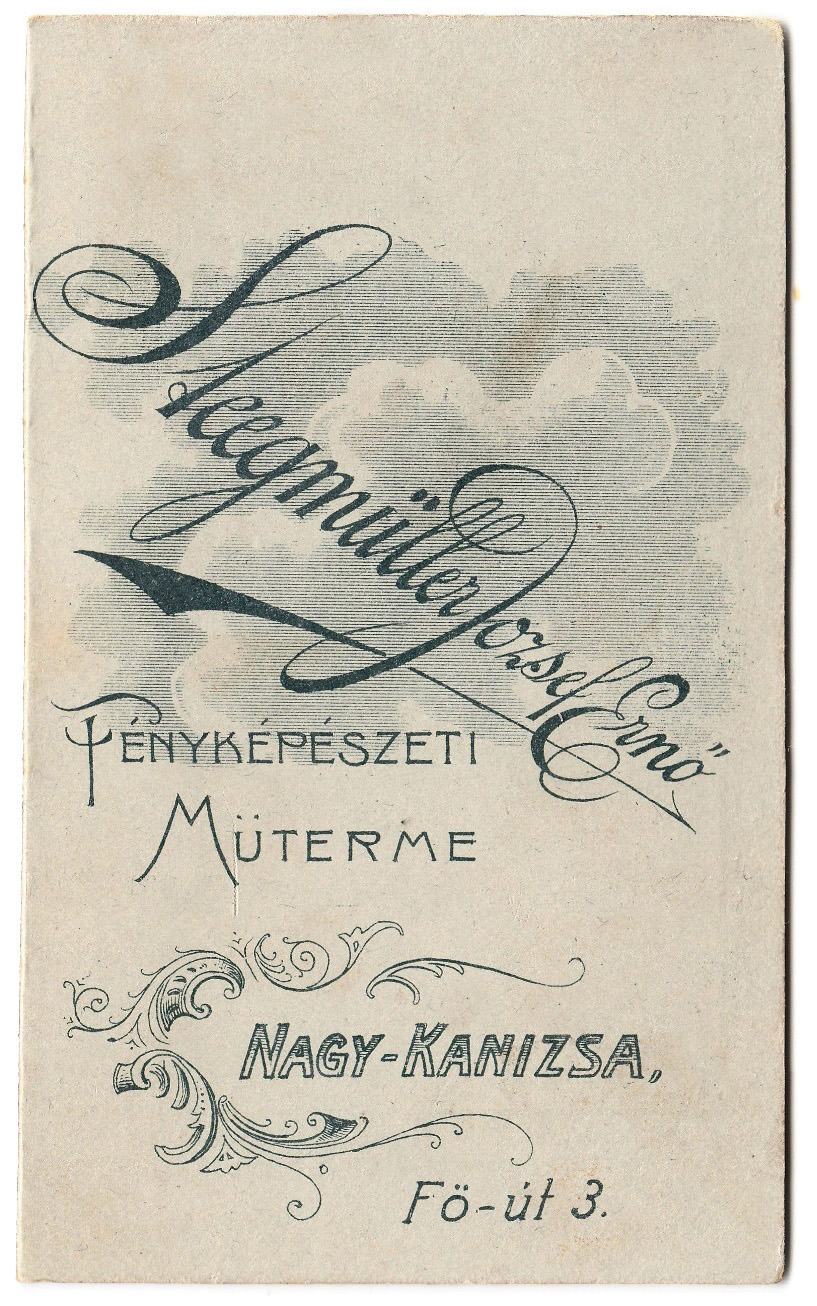 Steegmüller József Ernő
FÉNYKÉPÉSZETI
MÜTERME
NAGY-KANIZSA,
Fö-út 3.